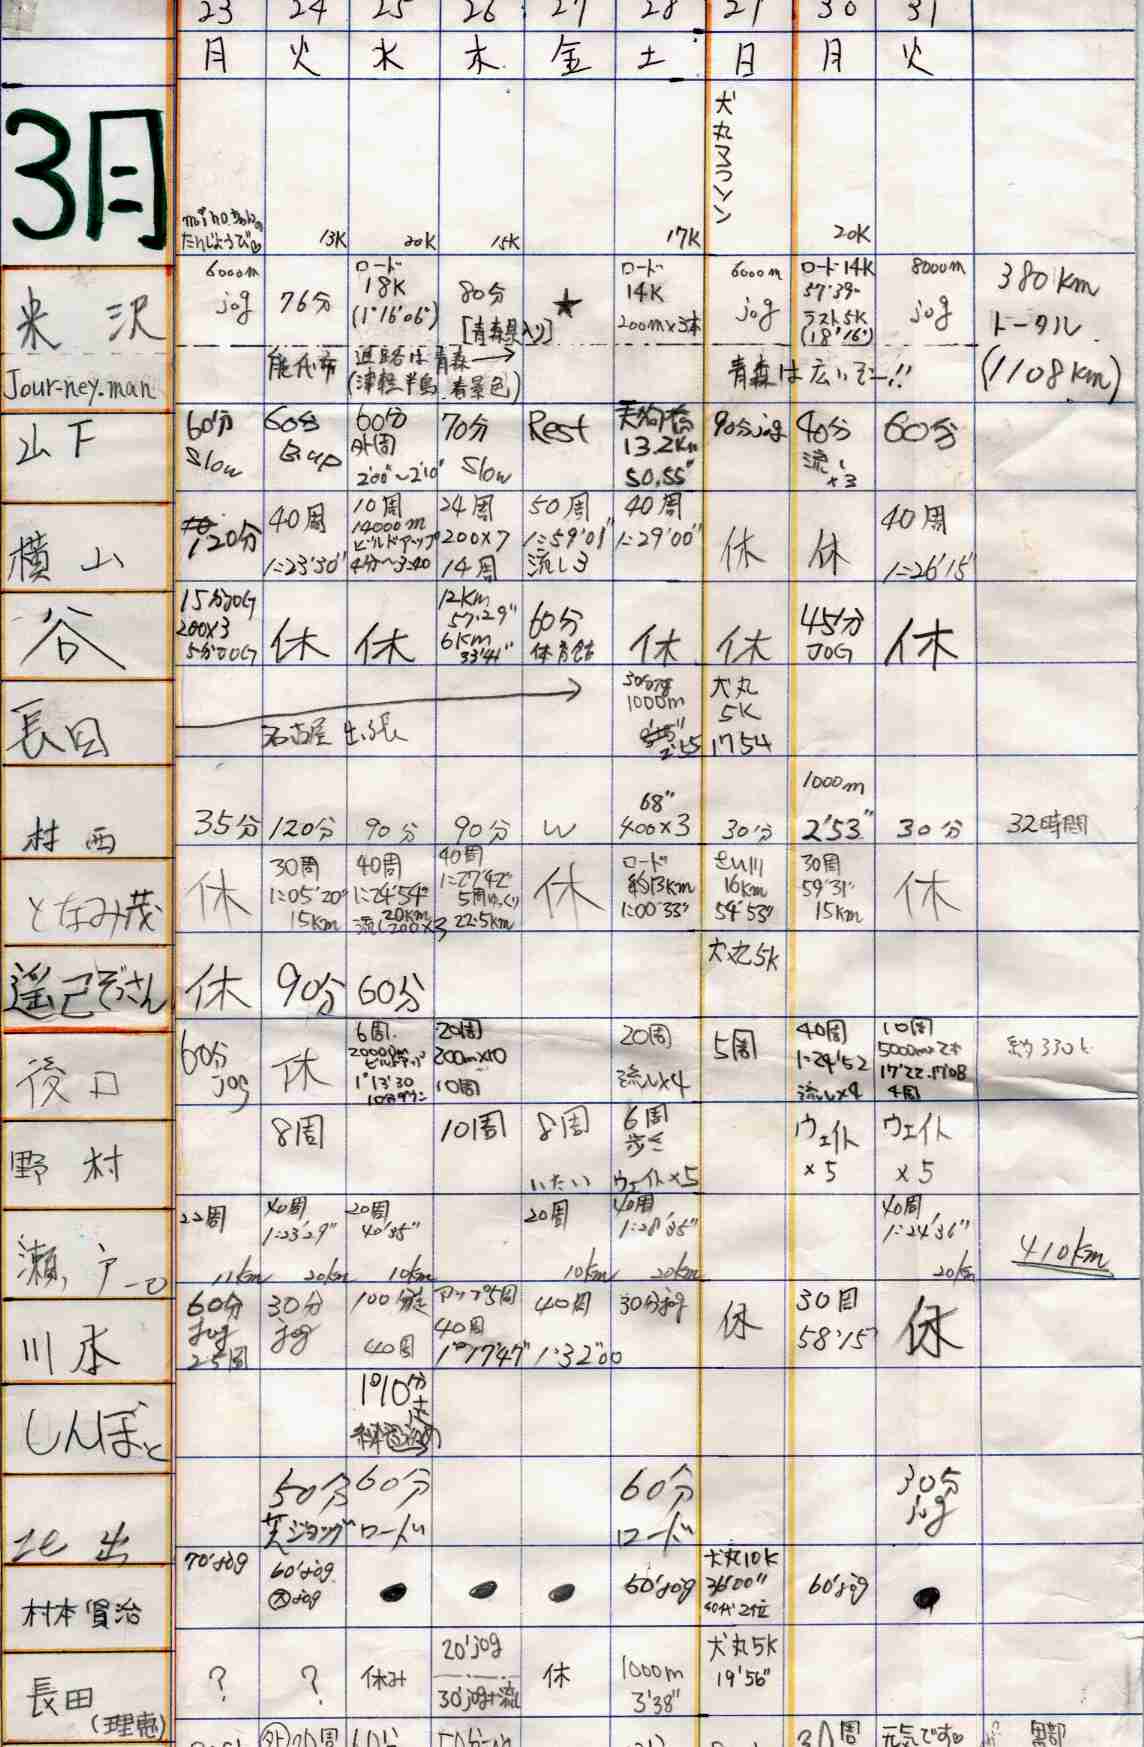 23 24 25 26 27 28 29 30 31
月 火 水 木 金 土 日 月 火
3月
たんじょうび
13K
20K
15K
17K
犬丸マラソン
20K
米沢
Jour-ney.man
6000m
jog
76分
ロード
18K
(1°16'06")
80分
[青森県入り]
★
ロード
14K
200m×3本
6000m
jog
ロード14K
57'39"
ラスト5K
(18'16")
8000m
jog
380km
トータル
(1108km)
能代市
進路は青森→
(津軽半島 春景色)
青森は広いぞー!!
山下
60分
Slow
60分
B.up
60分
外周
2'00"~2'10"
70分
Slow
Rest
天狗橋
13.2Km
50.55"
90分jog
40分
流し
×3
60分
横山
120分
40周
1:23'30"
10周
14000m
ビルドアップ
4分~3:40
24周
200×7
14周
50周
1:59'01"
流し3
40周
1:29'00"
休
休
40周
1:26'15"
谷
15分JOG
200×3
5分JOG
休
休
12Km
57.29"
6Km
33'41"
60分
体育館
休
休
45分
JOG
休
長田
名古屋出張
1000m
2'55
犬丸
5K
1754
村西
35分
120分
90分
90分
W
68"
400×3
30分
1000m
2'53"
30分
32時間
となみ茂
休
30周
1:05'20"
15km
40周
1:24'54"
20km
流し200×3
40周
1:27'42"
5周ゆっくり
22.5km
休
ロード
約13km
1:00'33"
さい川
16km
54'53"
30周
59'31"
15km
休
遥己ぞっさん
休
90分
60分
犬丸5K
後口
60分
jog
休
6周
20000m
ビルドアップ
1°13'30
10分ダウン
20周
200m×10
10周
20周
流し×4
5周
40周
1:24'52
流し×4
10周
5000m×2本
17'22.17'08
4周
約330k
野村
8周
10周
8周
いたい
6周
歩き
ウェイト×5
ウェイト
×5
ウェイト
×5
瀬戸
22周
11km
40周
1:23'29"
20km
20周
40'35"
10km
20周
10km
40周
1:28'35"
20km
40周
1:24'36"
20km
410km
川本
60分
jog
25周
30分
jog
100分走
40周
アップ5周
40周
1°17'47"
40周
1:32"00
30分jog
休
30周
58'15"
休
しんぼと
1°10分
走
北出
50分
芝ジョッグ
60分
ロード
60分
ロード
30分
jog
村本賢治
70'jog
60'jog
jog
●
●
●
60'jog
犬丸10K
36'00"
40代2位
60'jog
●
長田
(理恵)
?
?
休み
20'jog
30'jog+流
休
1000m
3'38"
犬丸5K
19'56"
30周
元気です